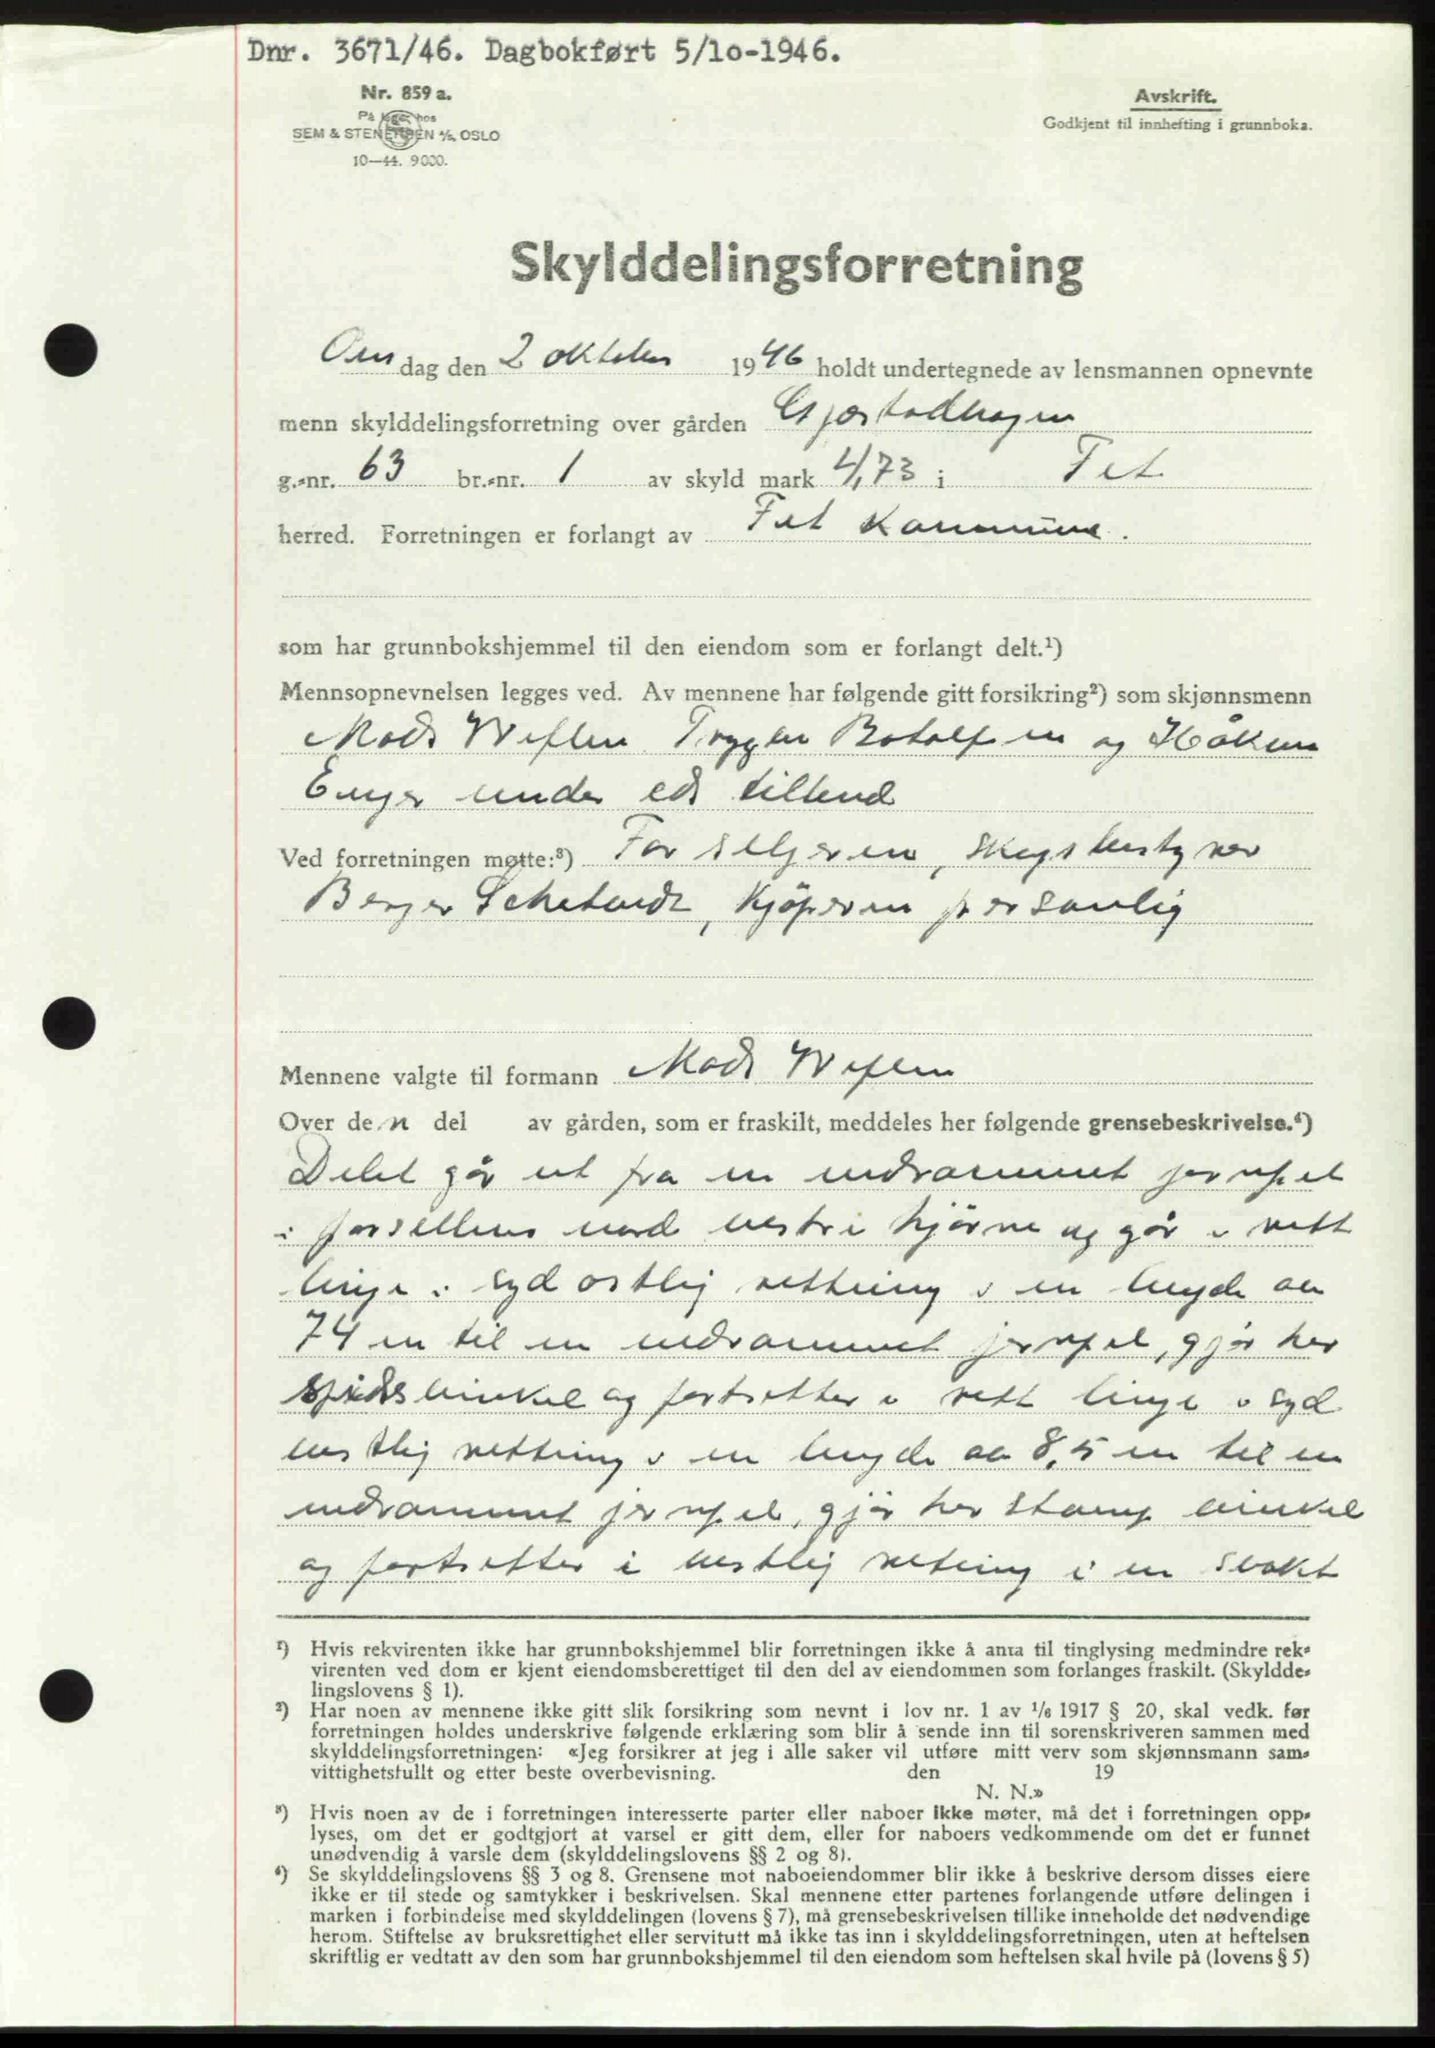 Dnr. 3671/46. Dagbokført 5/10-1946.
Nr. 859 a.
På lager hos
SEM & STENERSEN A/S, OSLO
10—44. 9000.
Avskrift.
Godkjent til innhefting i grunnboka.
Skylddelingsforretning
Onsdag den 2 oktober 1946 holdt undertegnede av lensmannen opnevnte
menn skylddelingsforretning over gården Gjærtodhagen
g.-nr. 63 br.-nr. 1 av skyld mark 4,73 i Fet
herred. Forretningen er forlangt av Fet kommune.
som har grunnbokshjemmel til den eiendom som er forlangt delt.¹)
Mennsopnevnelsen legges ved. Av mennene har følgende gitt forsikring²) som skjønnsmenn
Mads Weflen Trygve Botolfsen og Håkon
Enger under ed
Ved forretningen møtte:³) For selgeren, skogbestyrer
Berger, kjøperen personlig
Mennene valgte til formann Mads Weflen
Over den del av gården, som er fraskilt, meddeles her følgende grensebeskrivelse.⁴)
Delet går ut fra en nedrammet jernpel
i parsellens nord vestre hjørne og går i rett
linje i syd ostlig rettning i en lengde av
74 m til en nedrammet jernpel, gjør her
spids vinkel og fortsetter i rett linje i syd
vestlig rettning i en lengde av 8,5 m til en
nedrammet jernpel, gjør her stomp vinkel
og fortsetter i vestlig retning i en svakt
¹) Hvis rekvirenten ikke har grunnbokshjemmel blir forretningen ikke å anta til tinglysing medmindre rek-
virenten ved dom er kjent eiendomsberettiget til den del av eiendommen som forlanges fraskilt. (Skyldde-
lingslovens § 1).
²) Har noen av mennene ikke gitt slik forsikring som nevnt i lov nr. 1 av 1/6 1917 § 20, skal vedk. før
forretningen holdes underskrive følgende erklæring som blir å sende inn til sorenskriveren sammen med
skylddelingsforretningen: «Jeg forsikrer at jeg i alle saker vil utføre mitt verv som skjønnsmann sam-
vittighetsfullt og etter beste overbevisning. den 19
N. N.»
³) Hvis noen av de i forretningen interesserte parter eller naboer ikke møter, må det i forretningen opp-
lyses, om det er godtgjort at varsel er gitt dem, eller for naboers vedkommende om det er funnet
unødvendig å varsle dem (skylddelingslovens §§ 2 og 8).
⁴) Se skylddelingslovens §§ 3 og 8. Grensene mot naboeiendommer blir ikke å beskrive dersom disses eiere
ikke er til stede og samtykker i beskrivelsen. Skal mennene etter partenes forlangende utføre delingen i
marken i forbindelse med skylddelingen (lovens § 7), må grensebeskrivelsen tillike inneholde det nødvendige
herom. Stiftelse av bruksrettighet eller servitutt må ikke tas inn i skylddelingsforretningen, uten at heftelsen
skriftlig er vedtatt av den som har grunnbokshjemmel til den eiendom som heftelsen skal hvile på (lovens § 5)